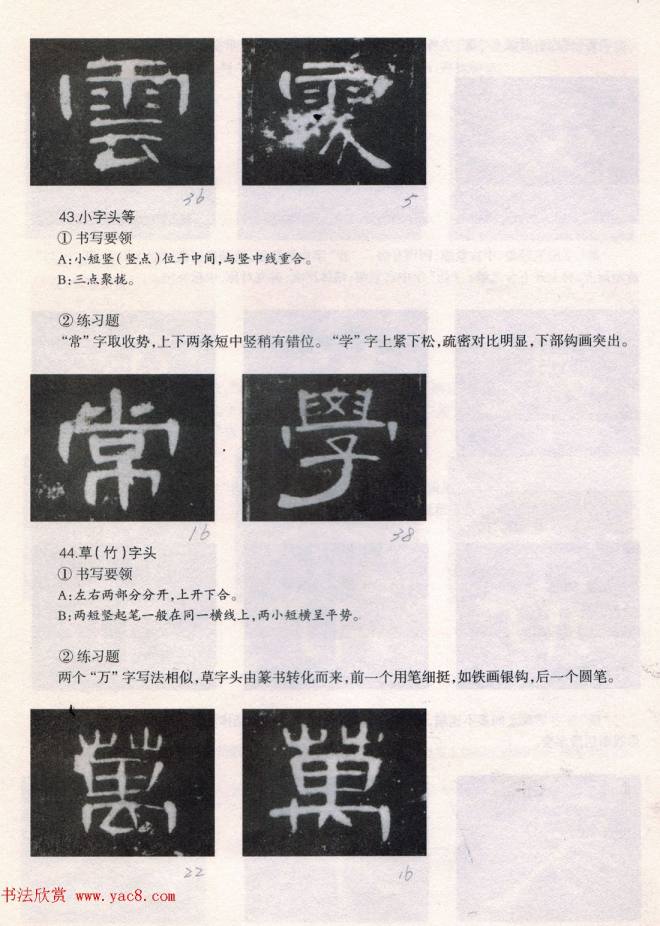 雲
36
5
43.小字头等
① 书写要领
A:小短竖(竖点)位于中间,与竖中线重合。
B:三点聚拢。
② 练习题
“常”字取收势,上下两条短中竖稍有错位。“学”字上紧下松,疏密对比明显,下部钩画突出。
常 學
16 38
44.草(竹)字头
① 书写要领
A:左右两部分分开,上开下合。
B:两短竖起笔一般在同一横线上,两小短横呈平势。
② 练习题
两个“万”字写法相似,草字头由篆书转化而来,前一个用笔细挺,如铁画银钩,后一个圆笔。
萬 萬
22 16
书法欣赏 www.yac8.com